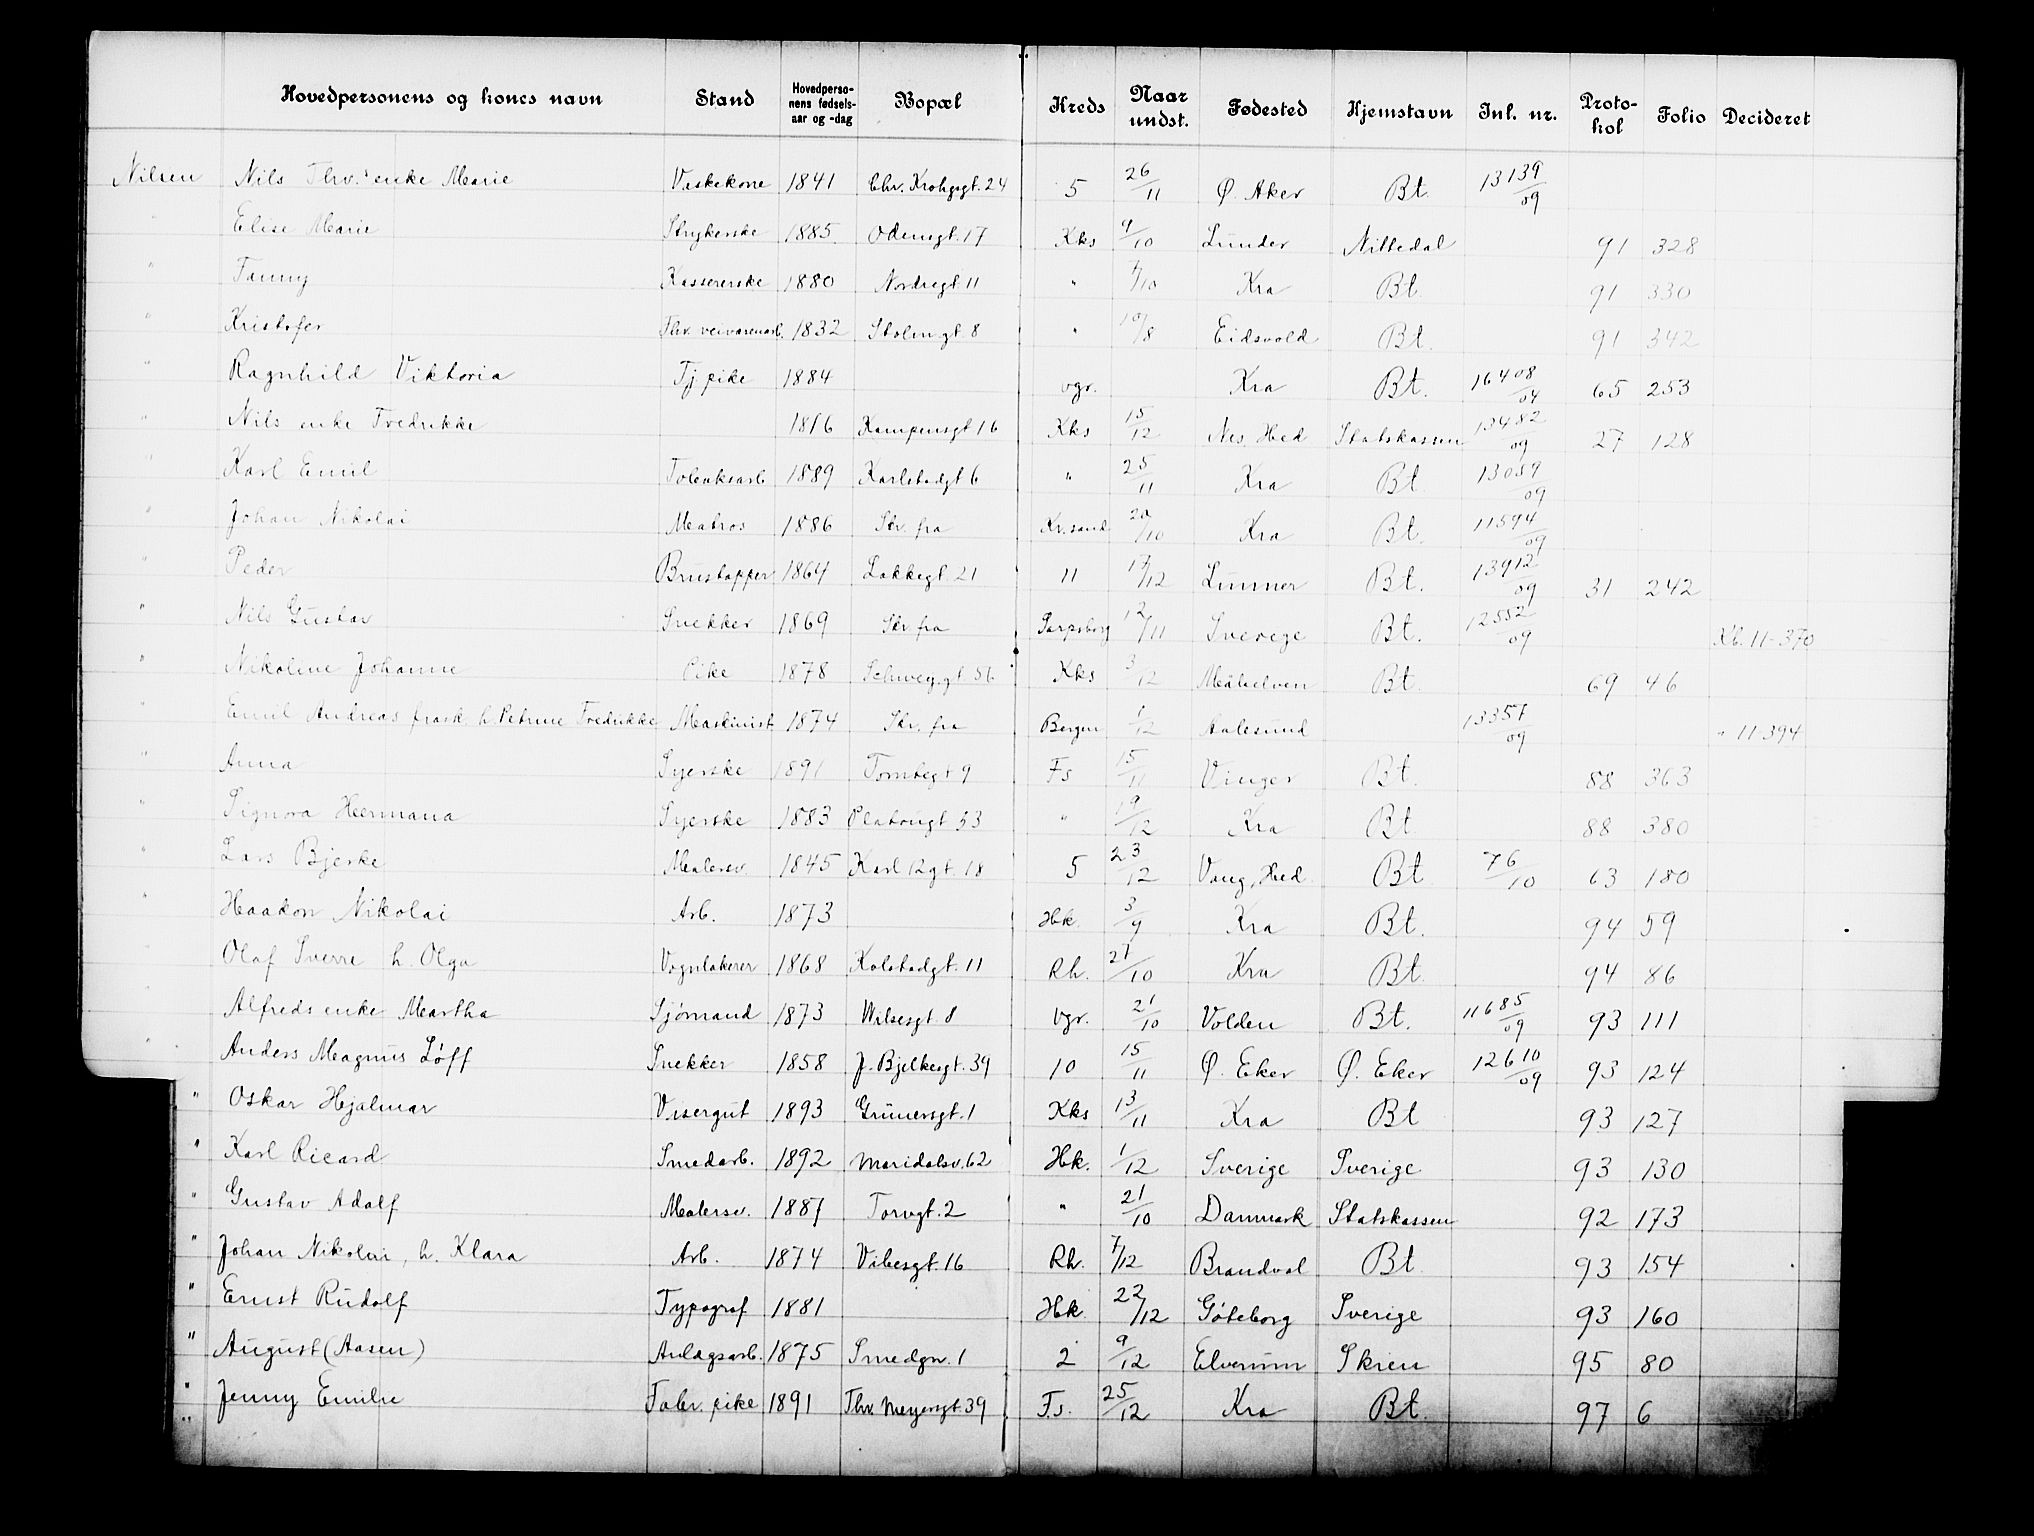 Hovedpersonens og kones navn Stand Hovedperso-nens fødsels-aar og -dag Bopæl Kreds Naar undst. Fødested Hjemstavn Inl. nr. Proto-kol Folio Decideret
Nilsen Nils Thv.s enke Marie Vaskekone 1841 Chr. Krohgsgt. 24 5 26/11 Ø. Aker Bt. 13139/09
" Elise Marie Strykerske 1885 Odensgt. 17 Kks 9/10 Lunder Nittedal 91 328
" Fanny Kassererske 1880 Nordregt. 11 " /10 Kra Bt. 91 330
" Kristofer Fhv. 1832 Stolmgt. 8 " 10/8 Eidsvold Bt. 91 342
" Ragnhild Viktoria Tj. pike 1884 vgr. Kra Bt. 16408/04 65 253
" Nils enke Fredrikke 1816 Kampensgt 16 Kks 15/12 Nes. Hed Statskassen 13482/09 27 128
" Karl Emil Tobaksarb 1889 Karlstadgt 6 " 25/11 Kra Bt. 13059/09
" Johan Nikolai Matros 1886 Skr. fra Kr.sand 20/10 Kra Bt. 11594/09
" Peder Brustapper 1864 Lakkegt. 21 11 17/12 Lunner Bt. 13912/09 31 242
" Nils Gustav Snekker 1869 Skr fra Sarpsborg 12/11 Sverige Bt. 12552/09 Kb. 11-370
" Nikoline Johanne Pike 1878 Schweg.gt 56 Kks 3/12 Bt. 69 46
" Emil Andreas frask. h. Petrine Fredrikke Maskinist 1874 Skr. fra Bergen 1/12 Aalesund 13357/09 " 11-394
" Anna Syerske 1891 Tomtegt 9 Fs 15/11 Vinger Bt. 88 363
" Signora Hermana Syerske 1883 Platougt 33 " 19/12 Kra Bt 88 380
" Lars Bjerke Malersv. 1845 Karl 12gt. 18 5 23/12 Vang, Hed. Bt 76/10 63 180
" Haakon Nikolai Arb. 1873 Hk. 3/9 Kra Bt. 94 59
" Olaf Sverre h. Olga Vognlakerer 1868 Kolstadgt. 11 Rh. 27/10 Kra Bt. 94 86
" Alfreds enke Martha Sjømand 1873 Wilsesgt 8 vgr. 21/10 Volden Bt. 11685/09 93 111
" Anders Magnus Løff Snekker 1858 J. Bjelkesgt. 39 10 15/11 Ø. Eker Ø. Eker 12610/09 93 124
" Oskar Hjalmar Visergut 1893 Grünersgt. 1 Kks 13/11 Kra Bt 93 127
" Karl Ricard Smedarb. 1892 Maridalsv. 62 Hk. 1/12 Sverige Sverige 93 130
" Gustav Adolf Malersv. 1887 Torvgt. 2 " 21/10 Danmark Statskassen 92 173
" Johan Nikolai, h. Klara Arb. 1874 Vibesgt. 16 Rh. 7/12 Brandval Bt 93 154
" Ernst Rudolf Typograf 1881 Hk. 22/12 Göteborg Sverige 93 160
" August (Aasen) Anlagsarb. 1875 Smedgn. 1 2 9/12 Elverum Skien 95 80
" Jenny Emilie Fabr. pike 1891 Thv. Meyersgt. 39 F.s. 25/12 Kra Bt. 97 6
"